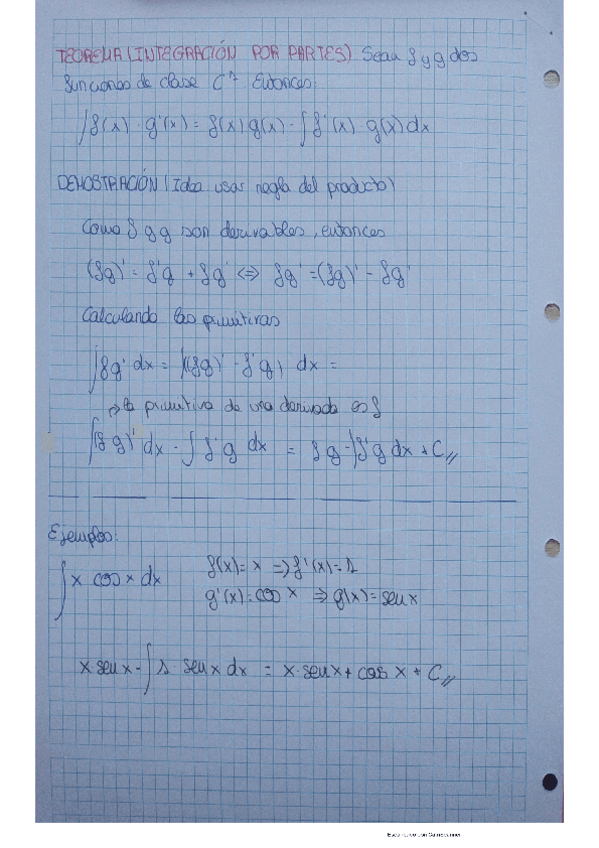 TEOREMA (INTEGRACIÓN POR PARTES) Sean f y g dos
funciones de clase C¹. Entonces:
∫f(x) · g'(x) = f(x) g(x) - ∫f'(x) · g(x) dx
DEMOSTRACIÓN (Idea usar regla del producto)
Como f y g son derivables, entonces
(fg)' = f'g + fg' <=> fg' = (fg)' - fg'
Calculando las primitivas
∫fg' dx = ∫((fg)' - f'g) dx =
→ la primitiva de una derivada es f
∫(f g)' dx - ∫ f'g dx = fg - ∫f'g dx + C//
Ejemplos:
∫x cos x dx f(x) = x => f'(x) = 1
g'(x) = cos x => g(x) = sen x
x sen x - ∫ 1 · sen x dx = x · sen x + cos x + C//
Escaneado con CamScanner